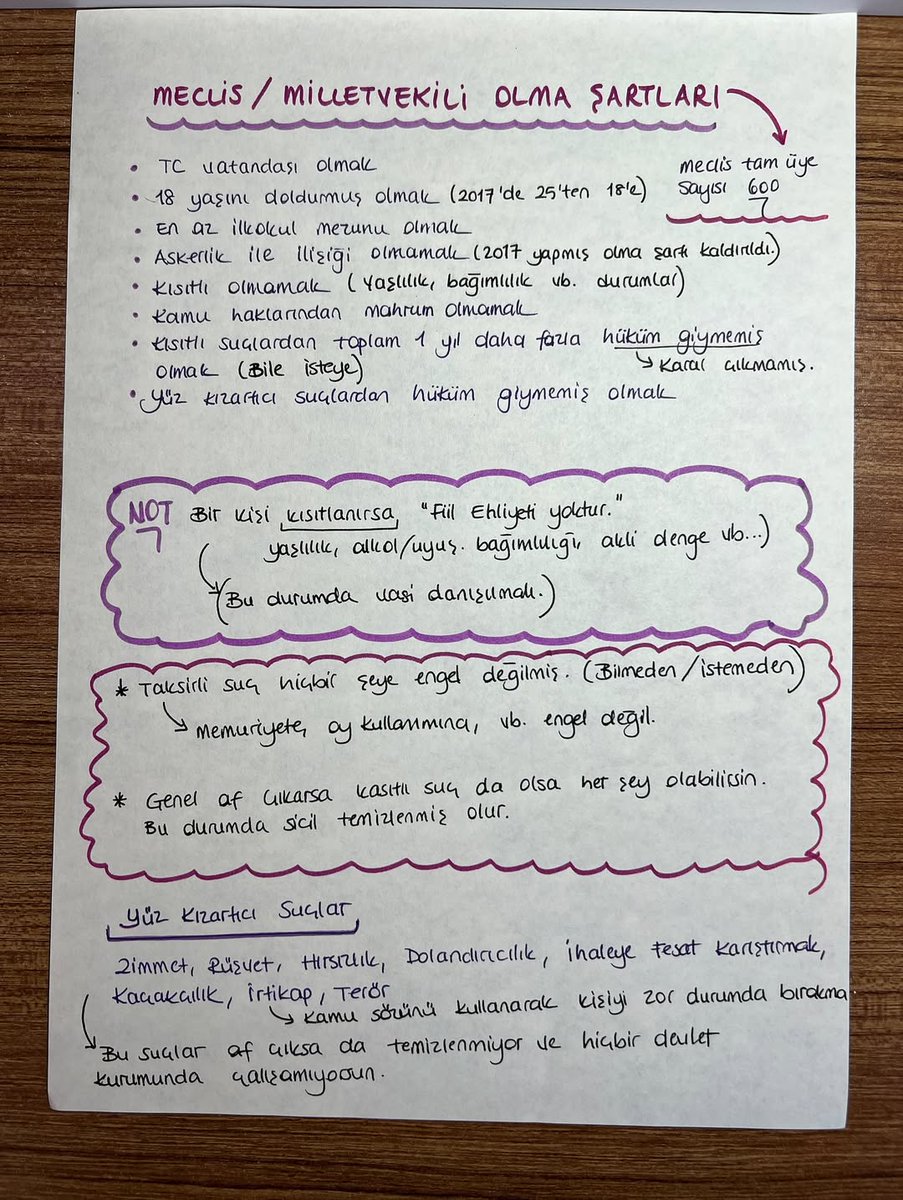 MECLİS / MİLLETVEKİLİ OLMA ŞARTLARI
meclis tam üye
sayısı 600
• TC vatandaşı olmak
• 18 yaşını doldurmuş olmak (2017'de 25'ten 18'e)
• En az ilkokul mezunu olmak
• Askerlik ile ilişiği olmamak (2017 yapmış olma şartı kaldırıldı.)
• Kısıtlı olmamak (Yaşlılık, bağımlılık vb. durumlar)
• Kamu haklarından mahrum olmamak
• Kısıtlı suçlardan toplam 1 yıl daha fazla hüküm giymemiş
olmak (Bile isteye)
Karar çıkmamış.
• Yüz kızartıcı suçlardan hüküm giymemiş olmak
NOT Bir kişi kısıtlanırsa "Fiil Ehliyeti yoktur."
yaşlılık, alkol/uyuş. bağımlılığı, akli denge vb...)
(Bu durumda vasi danışılmalı.)
* Taksirli suç hiçbir şeye engel değilmiş. (Bilmeden/istemeden)
memuriyete, oy kullanımına, vb. engel değil.
* Genel af çıkarsa kasıtlı suç da olsa her şey olabilirsin.
Bu durumda sicil temizlenmiş olur.
Yüz Kızartıcı Suçlar
Zimmet, Rüşvet, Hırsızlık, Dolandırıcılık, İhaleye Fesat Karıştırmak,
Kaçakcılık, İrtikap, Terör
Kamu sözünü kullanarak kişiyi zor durumda bırakma
Bu suçlar af çıksa da temizlenmiyor ve hiçbir devlet
kurumunda çalışamıyorsun.